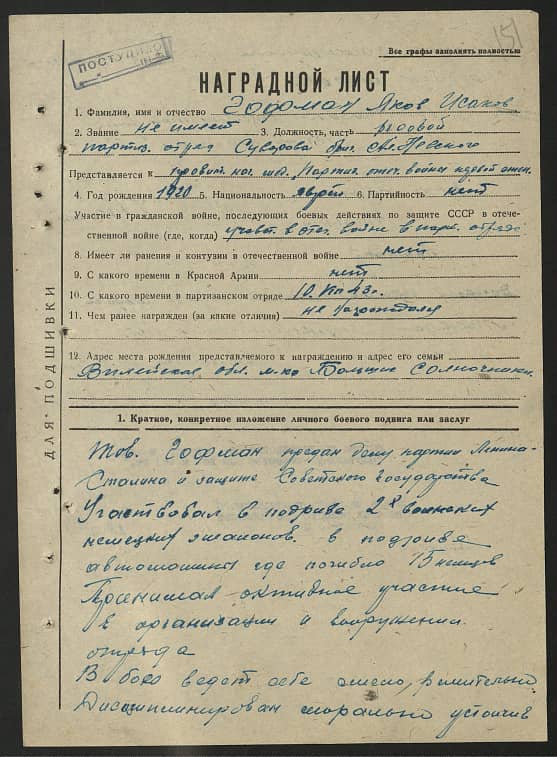 151
Все графы заполнять полностью
ПОСТУПИЛО
НАГРАДНОЙ ЛИСТ
1. Фамилия, имя и отчество Гофман Яков Исаков
2. Звание не имеет 3. Должность, часть рядовой
партиз. отряд Суворова бриг. Невского
Представляется к Партиз. отеч. войны
4. Год рождения 1920 5. Национальность еврей 6. Партийность нет
Участие в гражданской войне, последующих боевых действиях по защите СССР в отече-
ственной войне (где, когда) участ. в отеч. войне в парт. отряде
8. Имеет ли ранения и контузии в отечественной войне нет
9. С какого времени в Красной Армии нет
10. С какого времени в партизанском отряде 10. 43г.
11. Чем ранее награжден (за какие отличия) не награждался
12. Адрес места рождения представляемого к награждению и адрес его семьи
Вилейская обл. м-ко Большие Солечники.
ДЛЯ ПОДШИВКИ
1. Краткое, конкретное изложение личного боевого подвига или заслуг
Тов. Гофман предан делу партии Ленина-
Сталина и защите Советского государства
Участвовал в подрыве 2х воинских
немецких эшалонов. в подрыве
автомашины где погибло 15 немцев
Принимал активное участие
в организации и вооружении
отряда
В бою ведет себе смело, решительно
Дисциплинирован морально устойчив